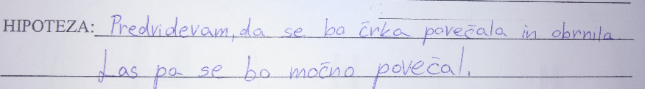 HIPOTEZA: Predvidevam, da se bo črka povečala in obrnila.
Las pa se bo močno povečal.